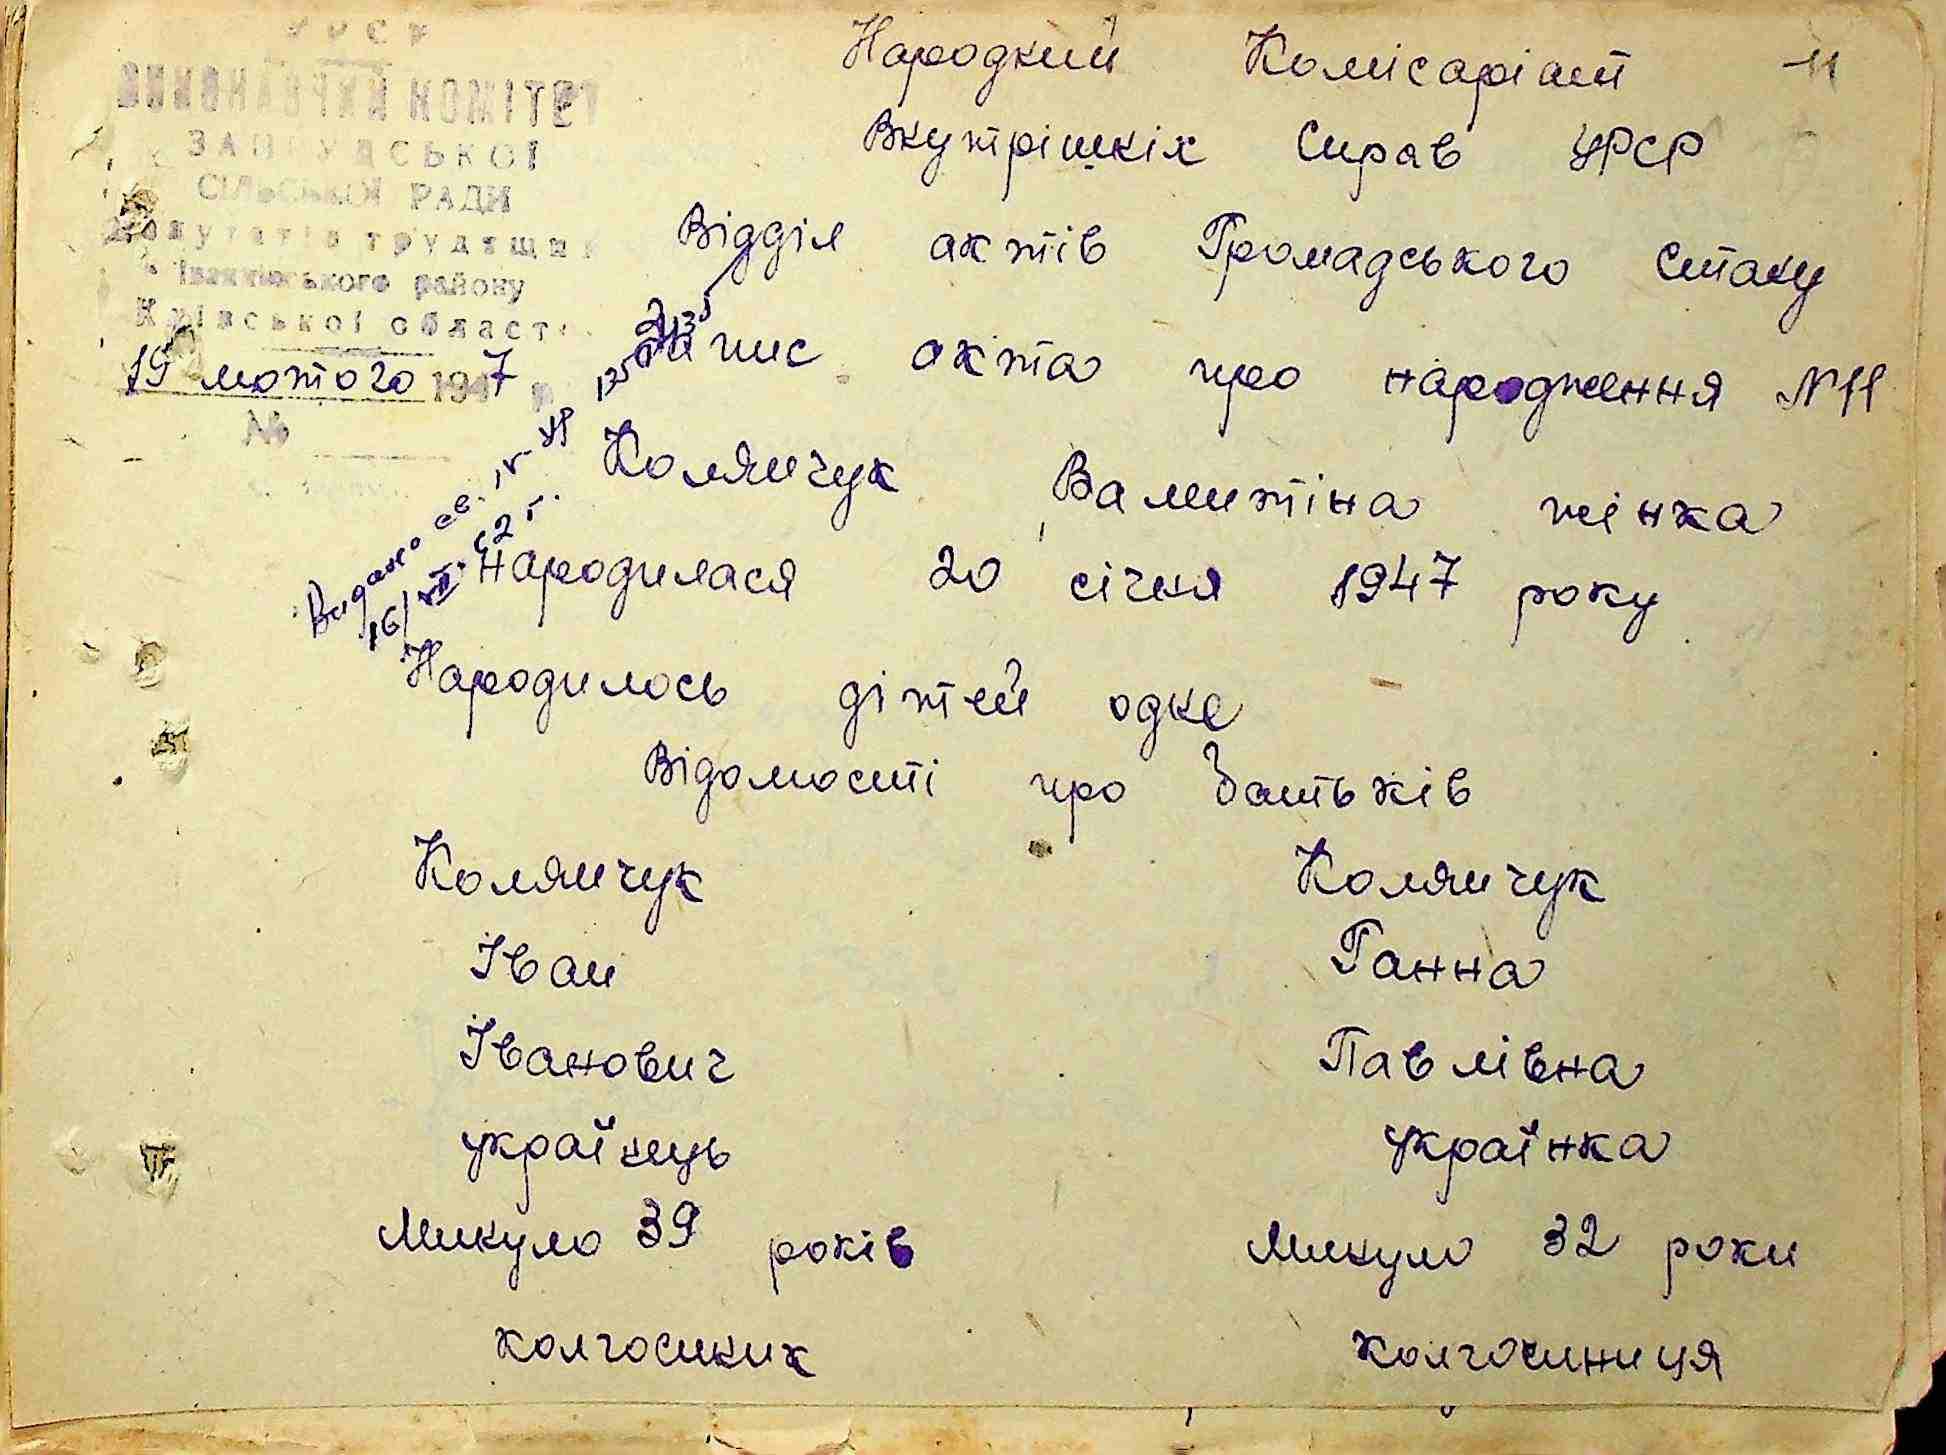 УРСР
ВИКОНАВЧИЙ КОМІТЕТ
СІЛЬСЬКОЇ РАДИ
Депутатів трудящих
Іванківського району
Київської області
19 лютого 1947 р
№
11
Народний Комісаріат
Внутрішніх Справ УРСР
Відділ актів Громадського стану
Запис акта про народження №11
Видано св.
16/VII. 62 г.
Колянчук Валинтіна жінка
Народилася 20 січня 1947 року
Народилось дітей одне
Відомості про батьків
Колянчук Колянчук
Іван Ганна
Іванович Павлівна
українець українка
Минуло 39 років Минуло 32 роки
колгоспник колгоспниця